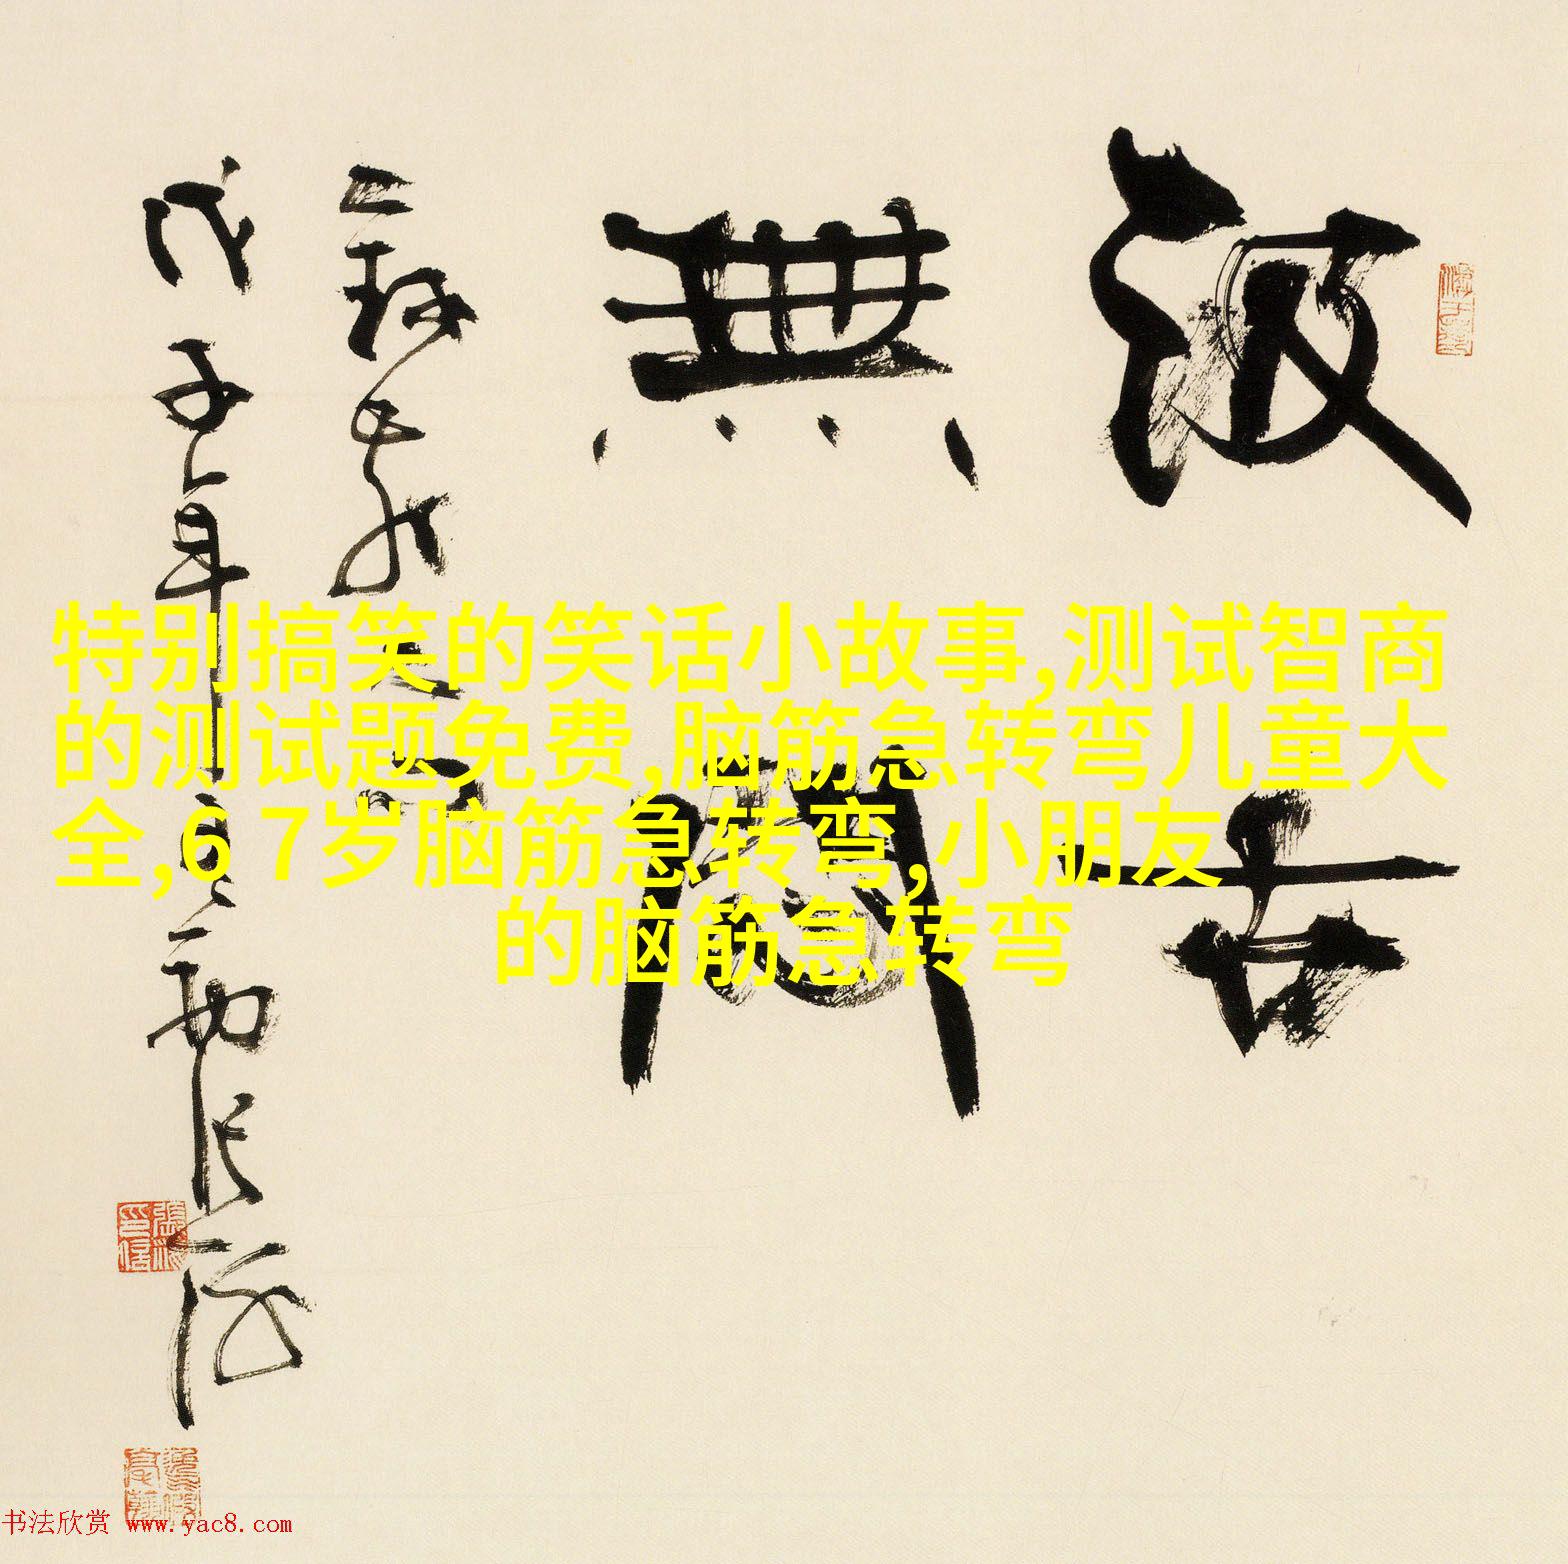 波
古
無
戊子年
特别搞笑的笑话小故事,测试智商
的测试题免费,脑筋急转弯儿童大
全,6 7岁脑筋急转弯,小朋友
的脑筋急转弯
书法欣赏 www.yac8.com